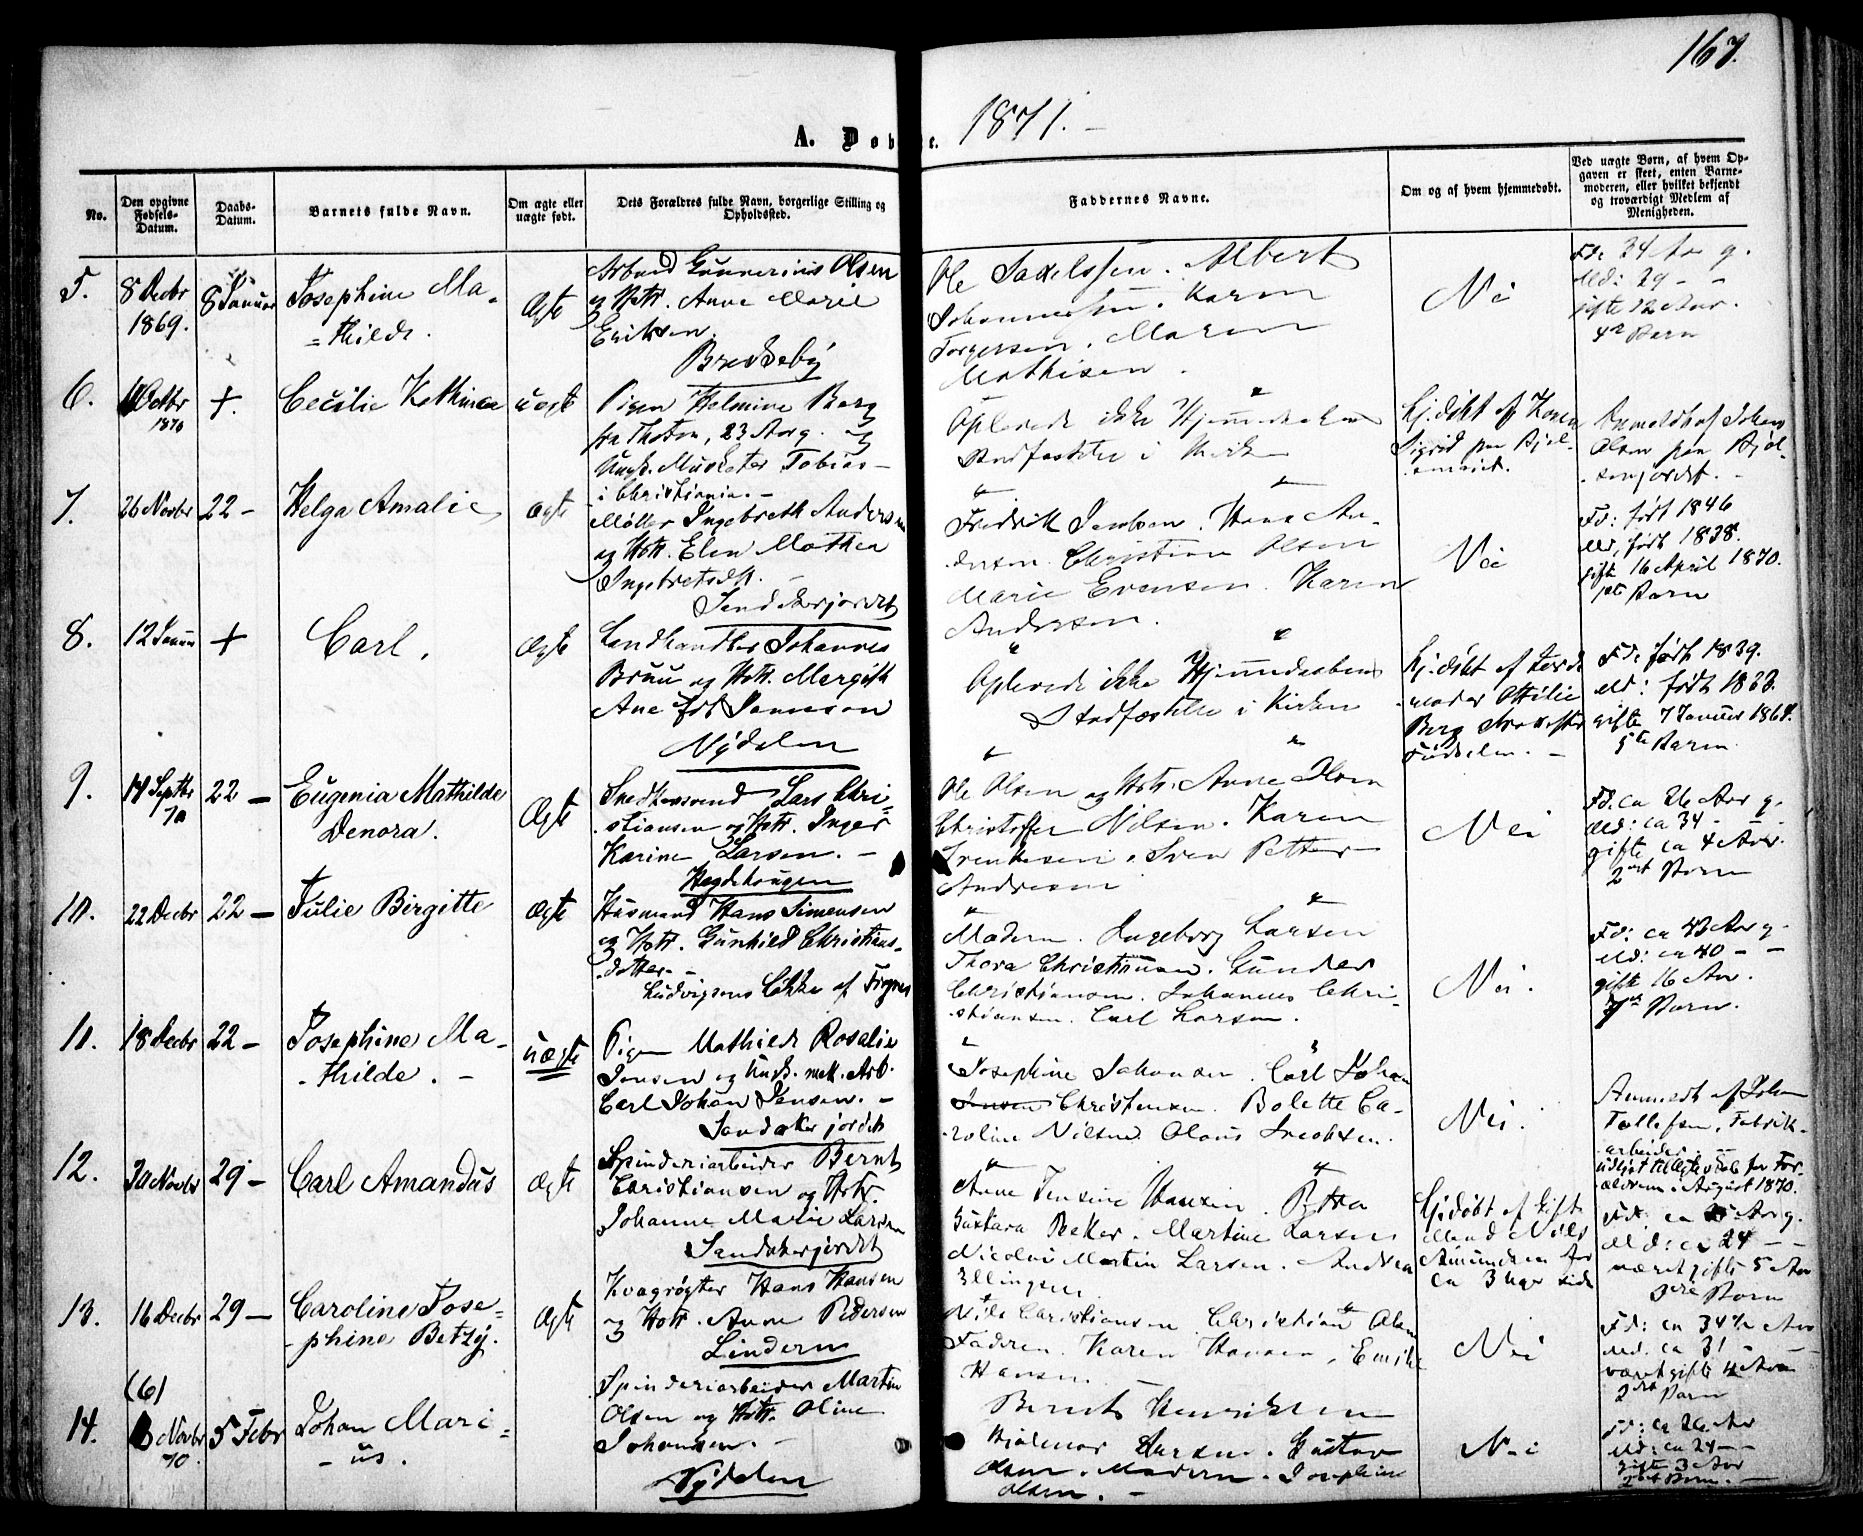 167.
A. Døb e. 1871.
No.
Den opgivne Fødsels-Datum.
Daabs-Datum.
Barnets fulde Navn.
Om ægte eller uægte født.
Dets Forældres fulde Navn, borgerlige Stilling og Opholdssted.
Faddernes Navne.
Om og af hvem hjemmedøbt.
Ved uægte Børn, af hvem Opgaven er skeet, enten Barnemoderen, eller hvilket bekjendt og troværdigt Medlem af Menigheden.
5.
8 Decbr
1869.
8 Januar
Josephine Ma-
=thilde.
Ægte
Arbmd Gunnerius Olsen
og Hstr. Anne Marie
Eriksen.
Ole Saxelssen. Albert
Johannessen. Karen
Torgersen. Maren
Mathisen.
Nei
Fd: 34 Aar g.
Md: 29 - -
gifte 12 Aar.
4de Barn
6.
Octbr
1870
+.
Cecilie Kathinca
uægte
Pigen Helmine Berg
fra Thoten, 23 Aar g. og
Ungk. Musketer Tobias -
i Christiania. -
Oplevede ikke Hjemmedaabens
Stadfæstelse i Kirken
Hj. døbt af Karen
Sigrid paa Bjøl-
Anmeldt af Johan
Olsen paa Bjøl-
senjordet. -
7.
26 Novbr
22 -
Helga Amalie
Ægte
Møller Ingebreth Andersen
og Hstr. Elen Mathea
Ingebretsdtr.
Sandakerjordet
Fredrik Jacobsen. Hans An-
dersen. Christian Olsen
Marie Evensen. Karen
Andersen.
Nei
Fd: født 1846
Md, født 1838.
gifte 16 April 1870.
1ste Barn
8.
12 Januar
+
Carl.
Ægte
Landhandler Johannes
Bruu og Hstr. Mergith
Ane født Jameson
Nydalen
Oplevede ikke Hjemmedaabens
Stadfæstelse i Kirken
Hj. døbt af Jorde-
moder Ottilie
Berg strax efter
Fødselen. -
Fd: født 1839.
Md: født 1833.
gifte 7 Januar
5te Barn.
9.
14 Septbr
70
22 -
Eugenia Mathilde
Denora.
Ægte
Snedkersvend Lars Chri-
stiansen og Hstr. Inger
Karine Larsen. -
Hegdehaugen
Ole Olsen og Hstr. Anne Olsen
Christoffer Nilsen. Karen
Svendsen. Sven Petter
Andresen
Nei
Fd: ca 26 Aar g.
Md: ca 34 - -
gifte ca 4 Aar.
2det Barn
10.
22 Decbr
22 -
Julie Birgitte
Ægte
Husmand Hans Simensen
og Hstr. Gunhild Christians-
datter. -
Ludvigsens Løkke af Frogner
Moderen. Ingeborg Larsen
Thora Christiansen. Gunder
Christiansen. Johannes Chri-
stiansen. Carl Larsen.
Nei.
Fd: ca 43 Aar g.
Md: ca 40 - -
gifte 16 Aar.
7de Barn.
11.
18 Decbr
22 -
Josephine Ma-
-thilde. -
uægte
Pigen Mathilde Rosalie
Jensen og Ungk. mek. Arb.
Carl Johan Jensen. -
Sandakerjordet
Josephine Johansen. Carl Johan
Jensen Christensen. Bolette Ca-
roline Nilsen. Olaus Jacobsen.
Nei.
Anmeldt af Johan
Tollefsen, Fabrik-
arbeider. -
12.
30 Novbr
29 -
Carl Amandus
Ægte
Spinderiarbeider Bernt
Christiansen og Hstr.
Johanne Marie Larsen
Sandakerjordet
Anne Jensine Hansen. Petra
Gustava Becker. Martine Larsen
Nicolai Martin Larsen. Andrea
Ellingsen
Hj. døbt af Gift
Mand Nils
Amundsen for
ca 3 Uger siden
ældrene i August 1870.
Md: ca 24 - -
været gifte 5 Aar
3die Barn
13.
16 Decbr
29 -
Caroline Jose-
-phine Betzy.
Ægte
Kvægrøgter Hans Hansen
og Hstr. Anne Pedersen
Lindern
Nils Christiansen Christian Olsen
Faderen. Karen Hansen, Emilie
Hansen
Nei
Fd: ca 34½ Aar
Md. ca 31 -
været gifte 4 Aar
2det Barn
14.
(6)
Novbr
70.
5 Febr
Johan Mari-
-us.
Spinderiarbeider Martin
Olsen og Hstr. Oline
Johansen. -
Nydalen
Bernt Henriksen
Hjalmar Larsen. Gustav
Olsen. Moderen. Josephine
Olsen. -
Nei
Fd: ca 26 Aar
Md: ca 24 - -
gifte 3 Aar
2det Barn. -